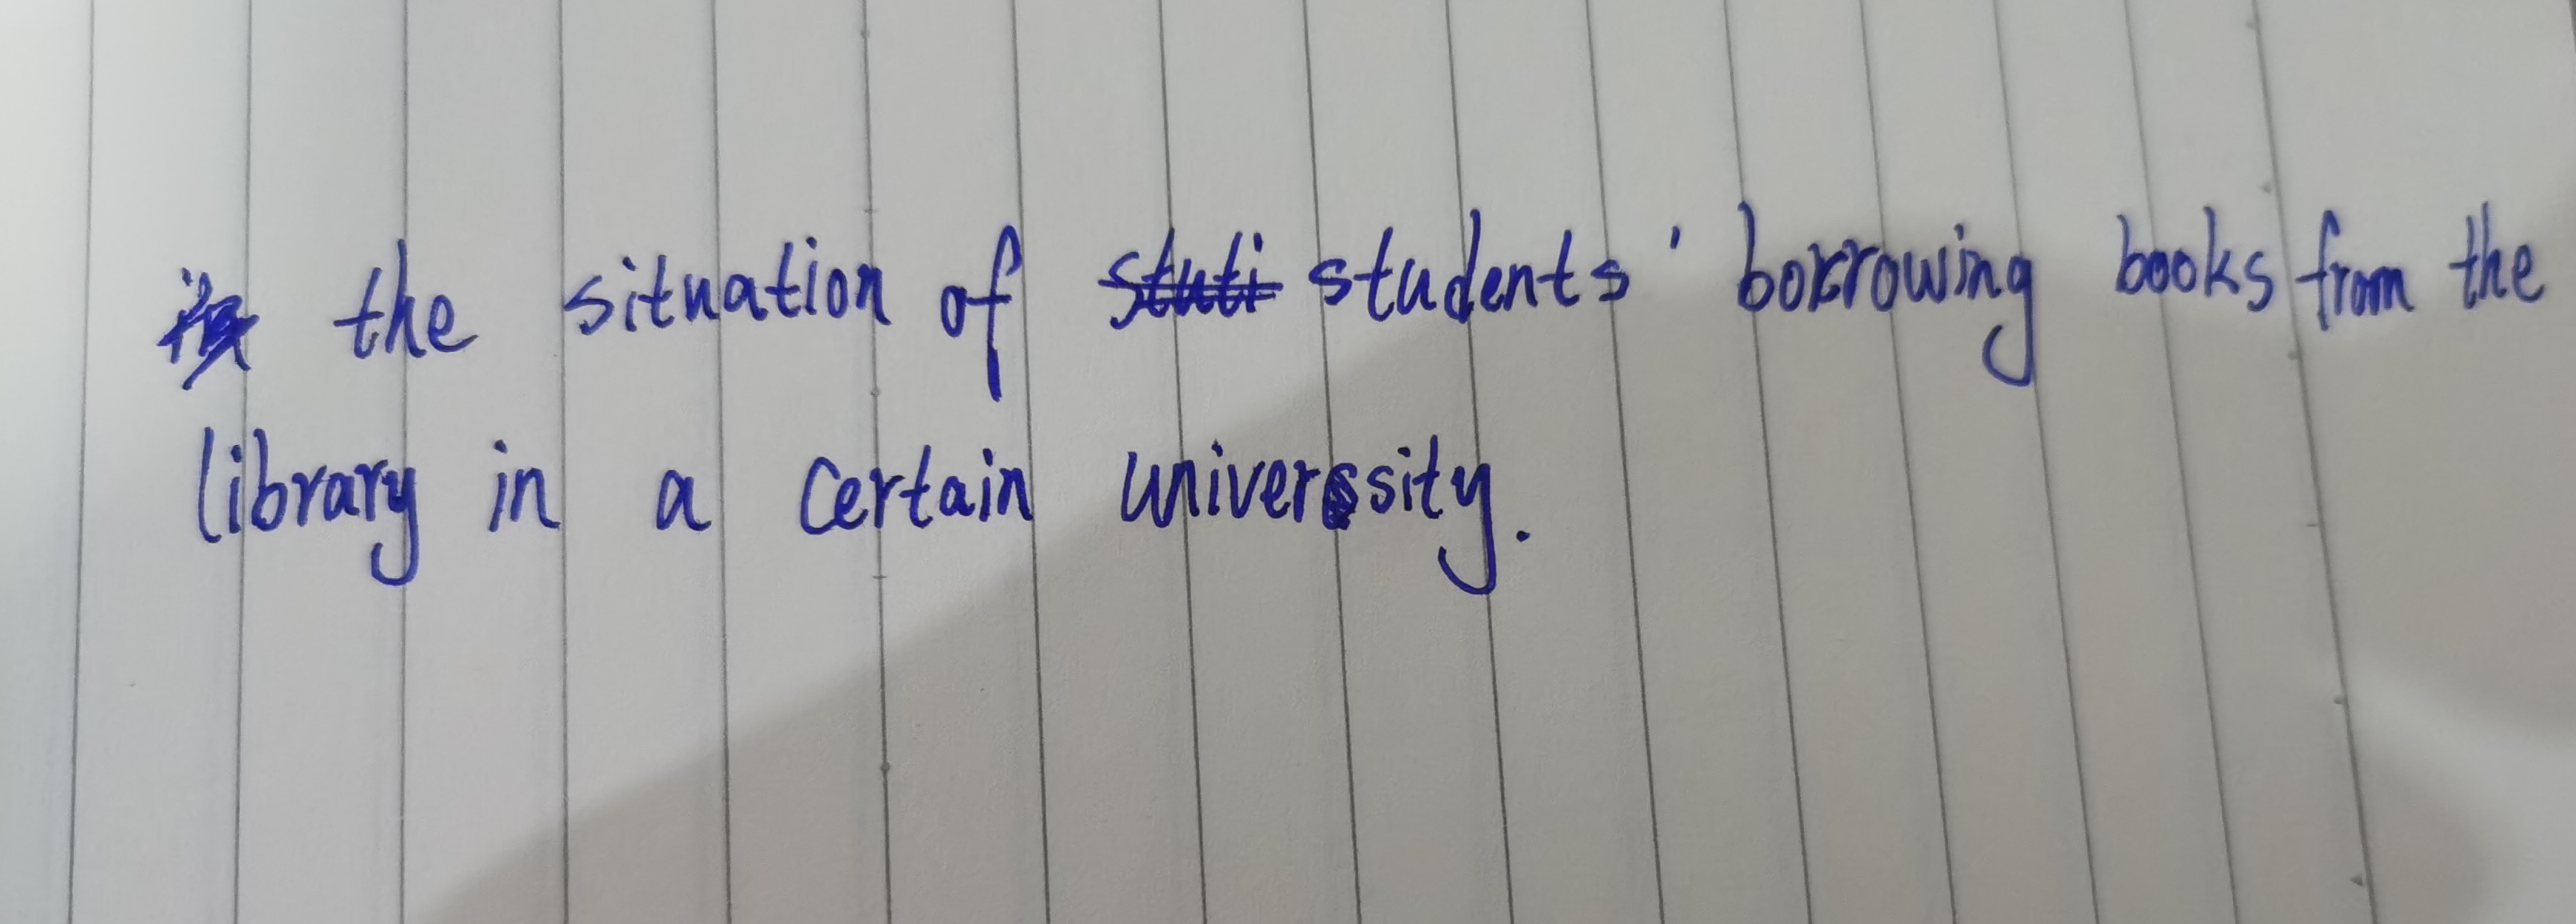 the situation of students' borrowing books from the
library in a certain university.